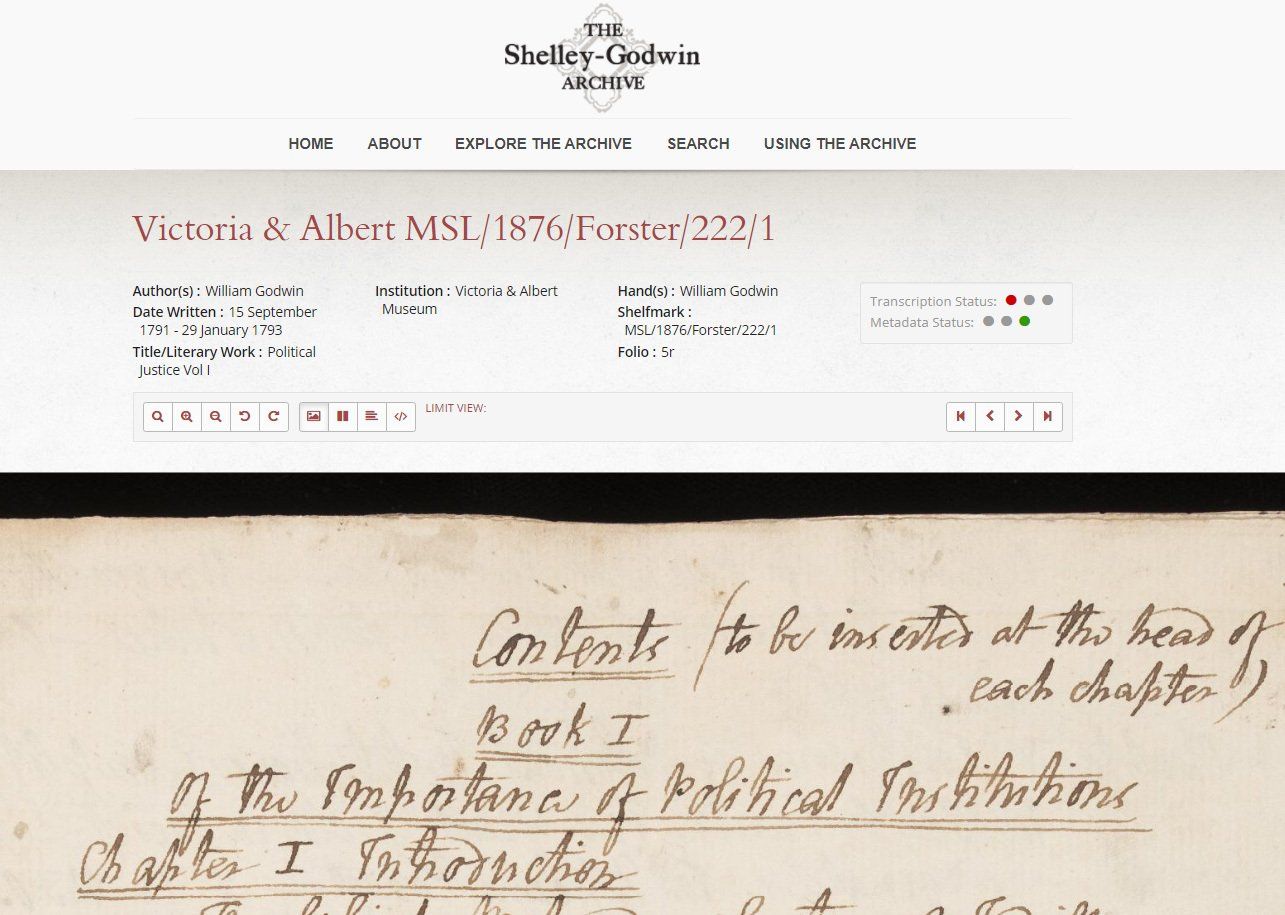 THE
Shelley-Godwin
ARCHIVE
HOME ABOUT EXPLORE THE ARCHIVE SEARCH USING THE ARCHIVE
Victoria & Albert MSL/1876/Forster/222/1
Author(s) : William Godwin
Date Written : 15 September
1791 - 29 January 1793
Title/Literary Work : Political
Justice Vol I
Institution : Victoria & Albert
Museum
Hand(s) : William Godwin
Shelfmark :
MSL/1876/Forster/222/1
Folio : 5r
Transcription Status:
Metadata Status:
LIMIT VIEW:
Contents (to be inserted at the head of
each chapter)
Book I
Of the Importance of Political Institutions
Chapter I Introduction